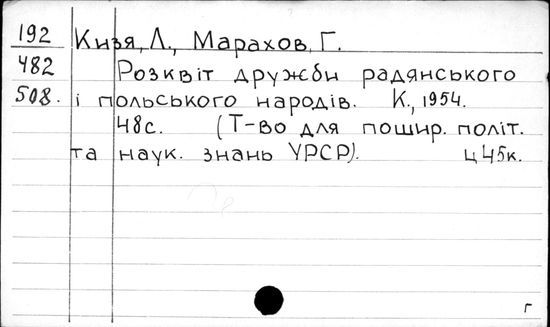 192 Кизя, Л., Марахов, Г.
482 Розквіт дружби радянського
508. і польського народів. К., 1954.
48с. (Т-во для пошир. політ.
та наук. знань УРСР). ц 45к.
г